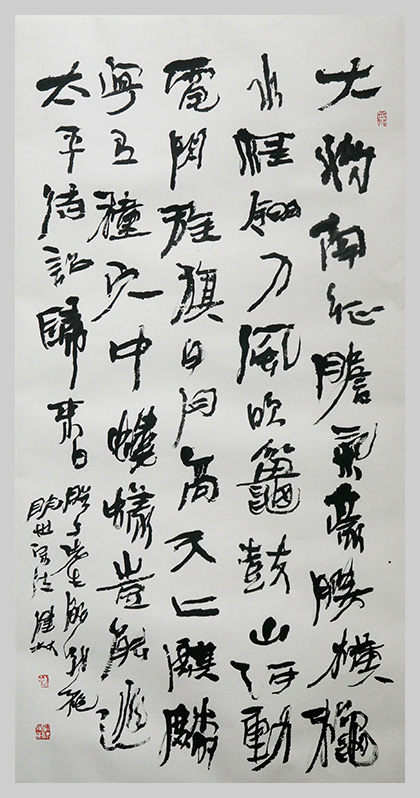 大將南征膽氣豪腰橫龝
水雁翎刀風吹鼉鼓山河動
電閃旌旗日月高天上麒麟
種穴中螻蟻豈能逃
太平待詔歸來日
朕与先生解戰袍
明世宗詩